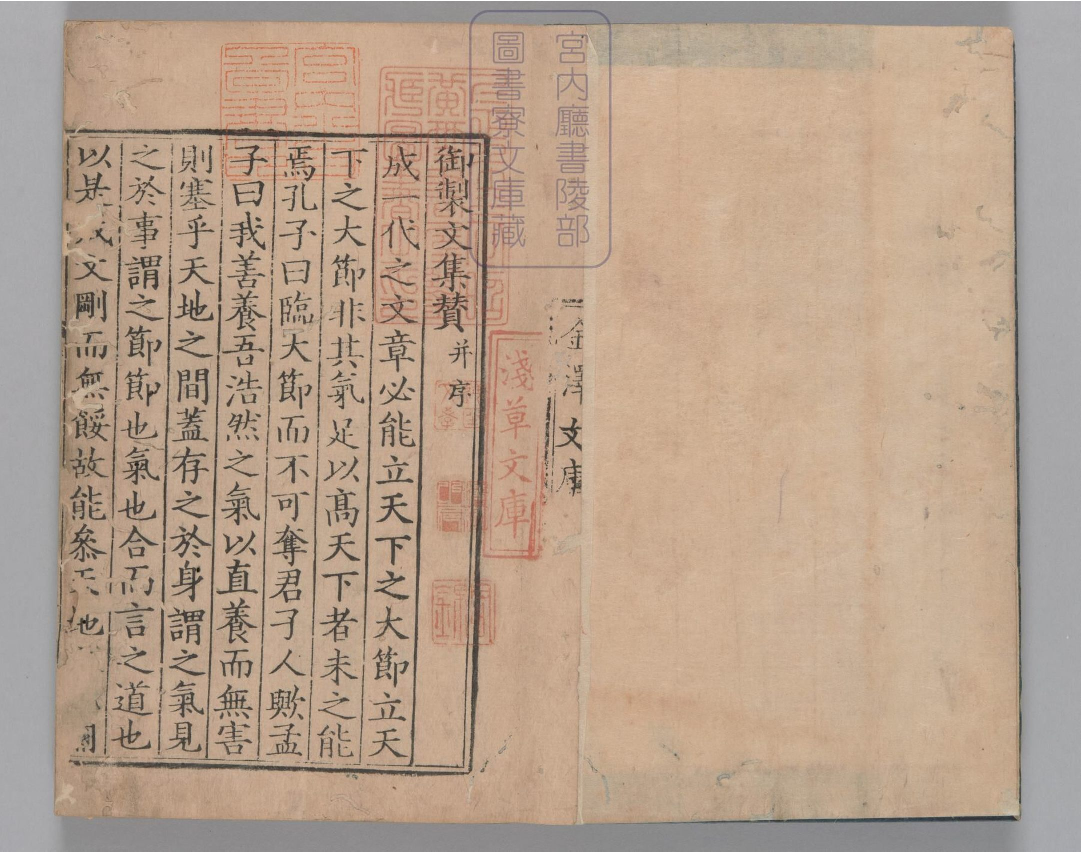 宮內廳書陵部
圖書寮文庫藏
金澤文庫
淺草文庫
御製文集賛并序
成一代之文章必能立天下之大節立天
下之大節非其氣足以髙天下者未之能
焉孔子曰臨大節而不可奪君子人歟孟
子曰我善養吾浩然之氣以直養而無害
則塞乎天地之間蓋存之於身謂之氣見
之於事謂之節節也氣也合而言之道也
以是成文剛而無餒故能叅天地